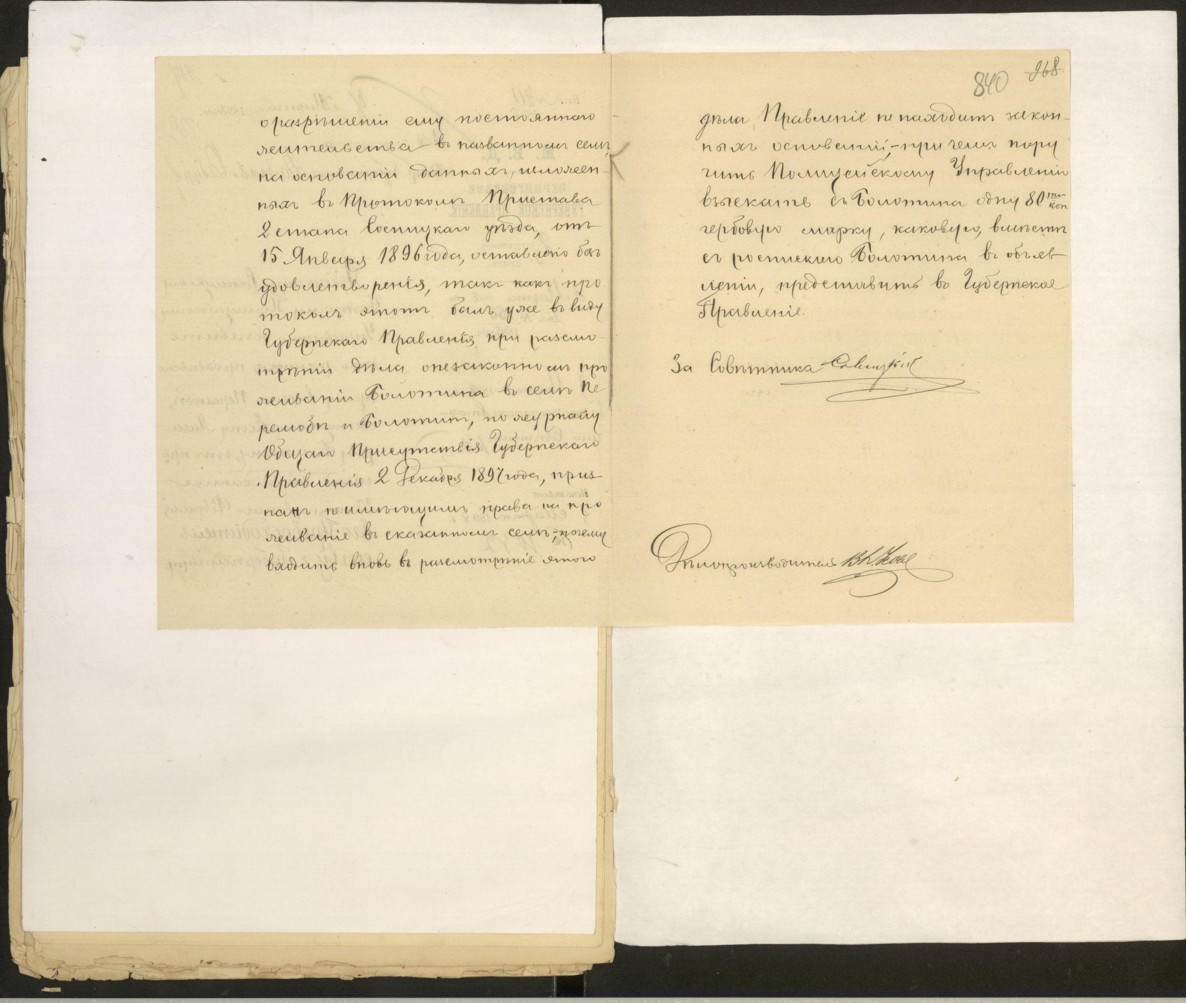 о разрѣшеніи ему постояннаго
жительства въ названномъ селѣ,
на основаніи данныхъ, изложен-
ныхъ въ протоколѣ Пристава
2 стана Сосницкаго уѣзда, отъ
15 Января 1896 года, оставлено безъ
удовлетворенія, такъ какъ про
токолъ этотъ былъ уже въ виду
Губернскаго Правленія при разсмо
трѣніи дѣла о незаконномъ про
живаніи Болотина въ селѣ Пе
релюбѣ и Болотинъ, по журналу
Общаго Присутствія Губернскаго
Правленія 2 Декабря 1897 года, приз-
нанъ не имѣющимъ права на про
живаніе въ сказанномъ селѣ, почему
входить вновь въ разсмотрѣніе этого
840 968
дѣла Правленіе не находитъ закон-
ныхъ основаній, при чемъ пору
чить Полицейскому Управленію
взыскать съ Болотина одну 80 ти коп
гербовую марку, каковую, вмѣстѣ
съ роспискою Болотина въ объяв
леніи, представить въ Губернское
Правленіе.
За Совѣтника
Дѣлопроизводитель